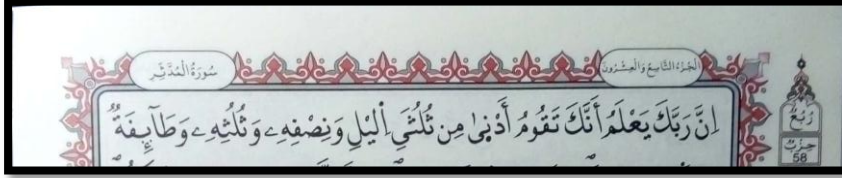 الْجُزْءُ التَّاسِعُ وَالْعِشْرُونَ
سُورَةُ الْمُدَّثِّر
اِنَّ رَبَّكَ يَعْلَمُ أَنَّكَ تَقُومُ أَدْنٜىٰ مِن ثُلُثَيِ اِ۬ليْلِ وَنِصْفِهِۦ وَثُلُثِهِۦ وَطَآئِفَةٞ
رُبْعُ
حِزْبُ
58